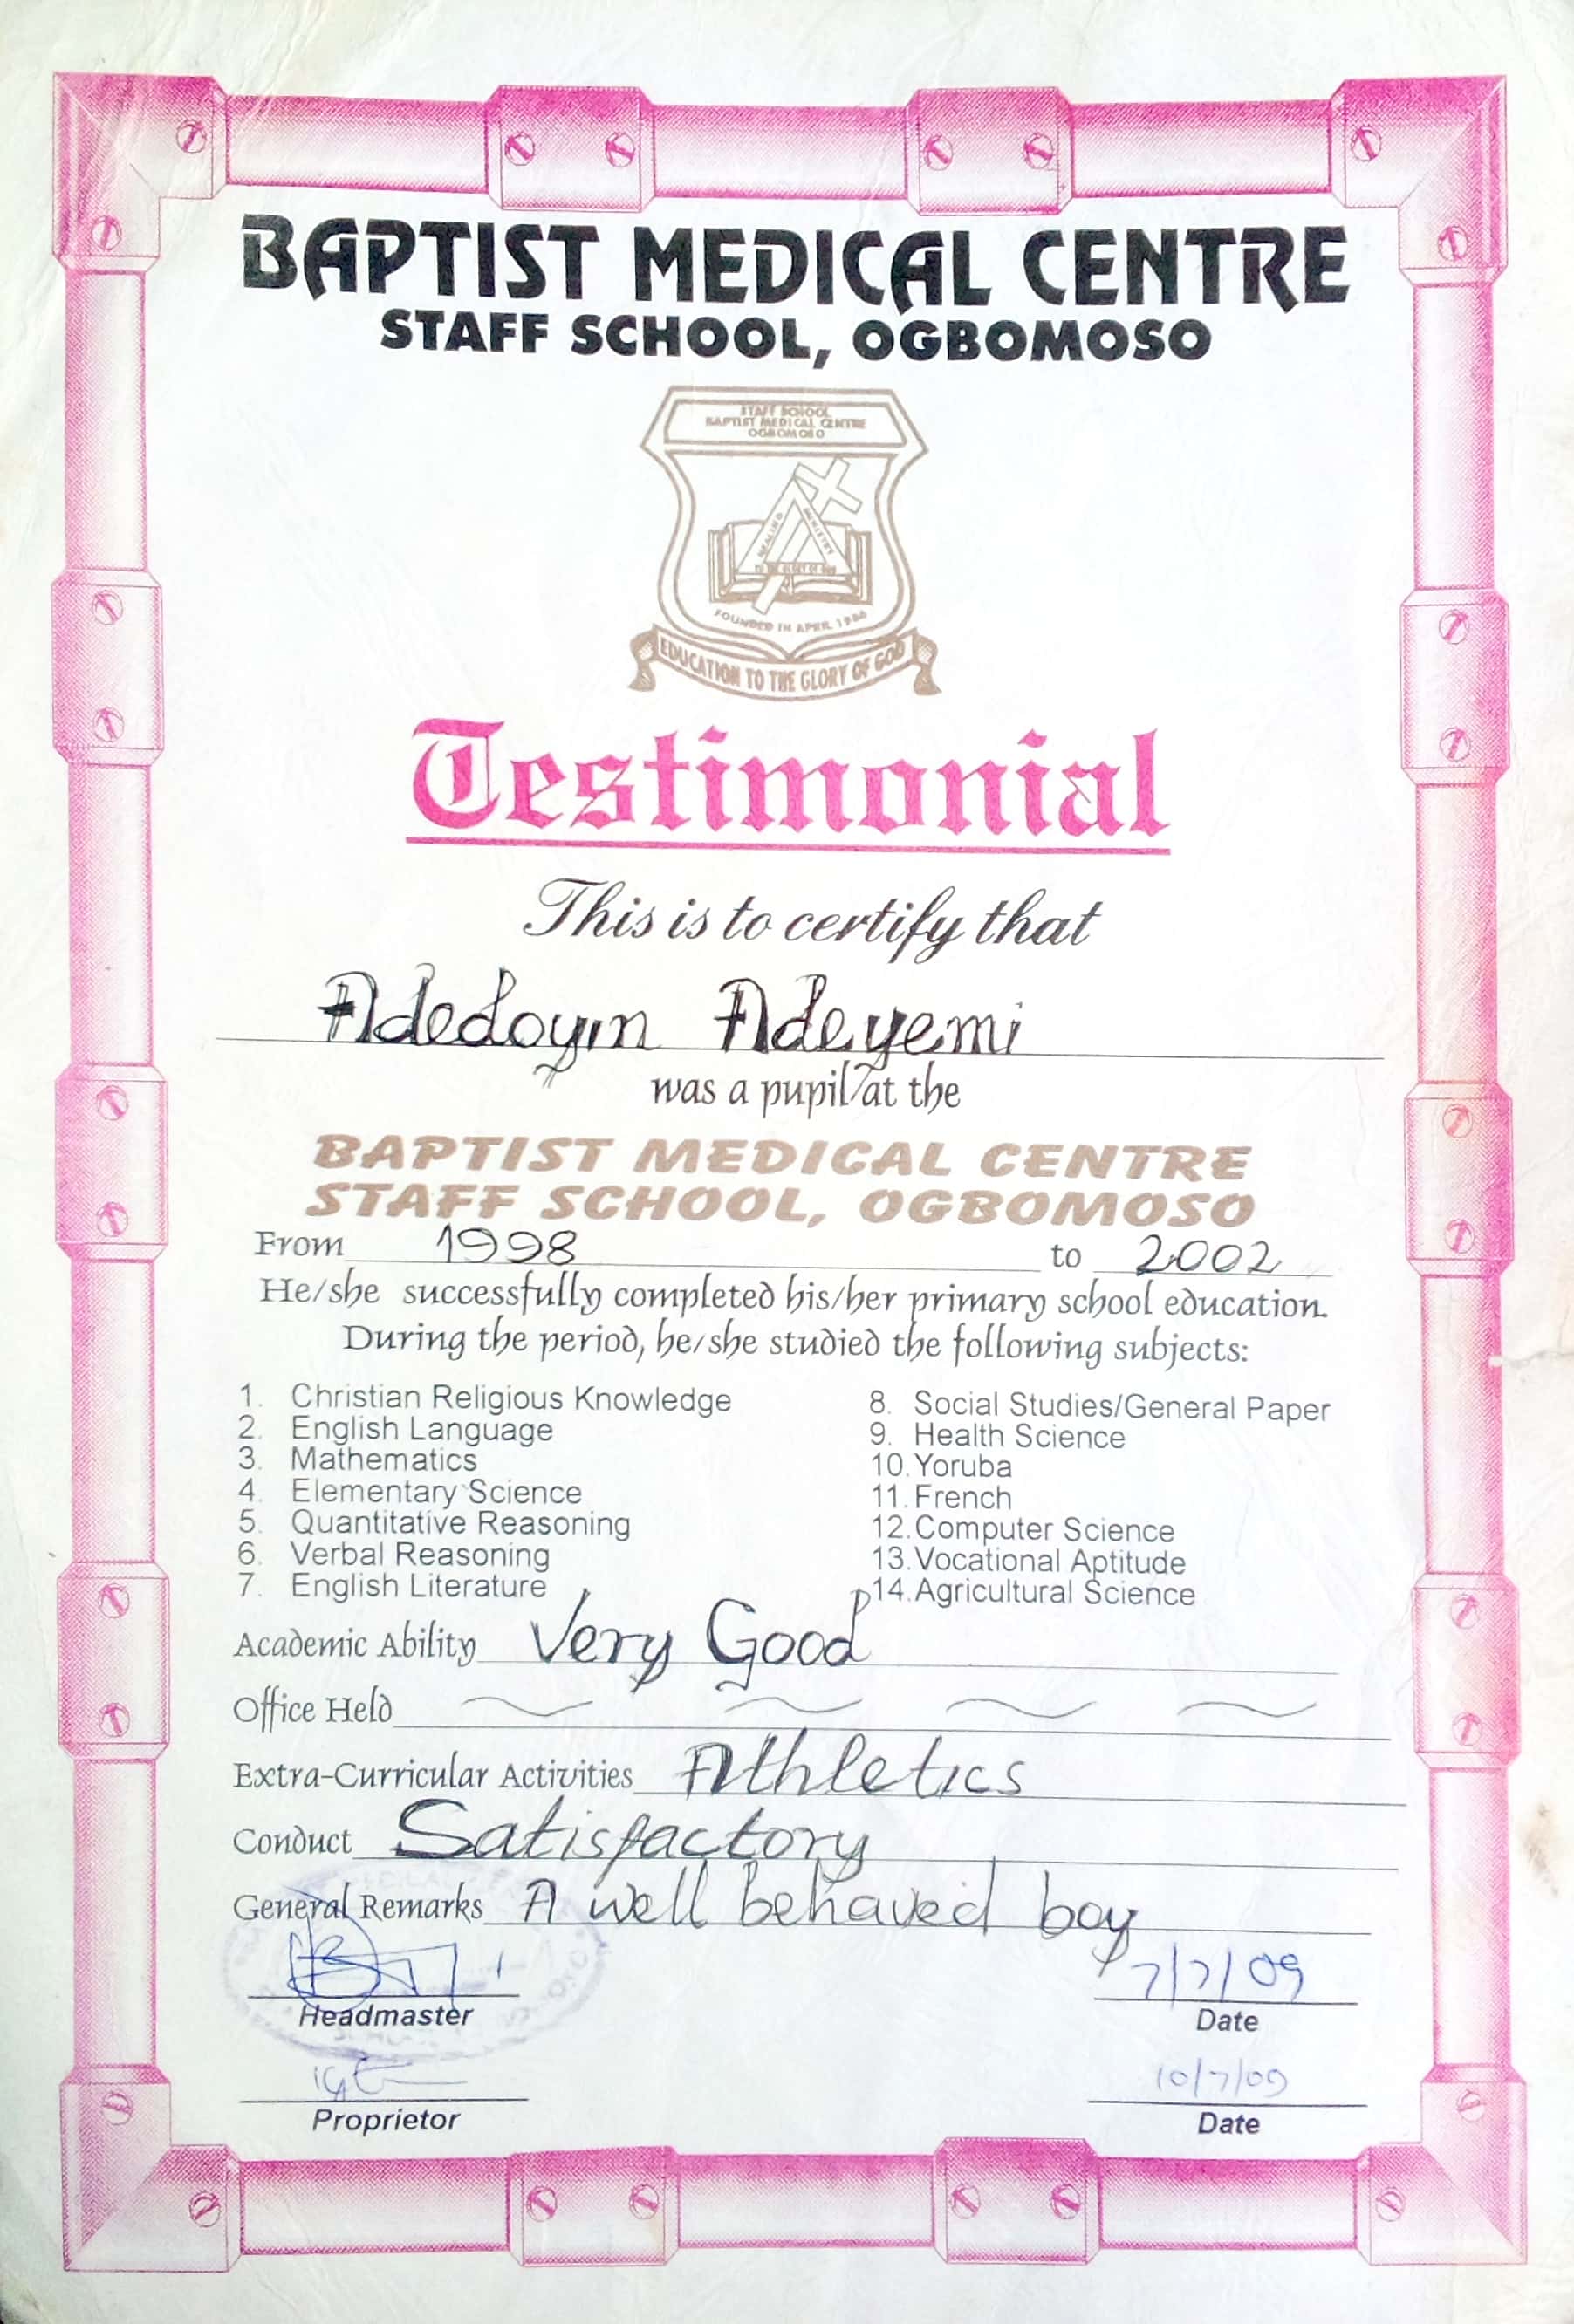 BAPTIST MEDICAL CENTRE
STAFF SCHOOL, OGBOMOSO
STAFF SCHOOL
BAPTIST MEDICAL CENTRE
OGBOMOSO
HEALING MINISTRY
TO THE GLORY OF GOD
FOUNDED IN APRIL
EDUCATION TO THE GLORY OF GOD
Testimonial
This is to certify that
Adedoyin Adeyemi
was a pupil at the
BAPTIST MEDICAL CENTRE
STAFF SCHOOL, OGBOMOSO
From 1998 to 2002
He/she successfully completed his/her primary school education.
During the period, he/she studied the following subjects:
1. Christian Religious Knowledge
2. English Language
3. Mathematics
4. Elementary Science
5. Quantitative Reasoning
6. Verbal Reasoning
7. English Literature
8. Social Studies/General Paper
9. Health Science
10. Yoruba
11. French
12. Computer Science
13. Vocational Aptitude
14. Agricultural Science
Academic Ability Very Good
Office Held
Extra-Curricular Activities Athletics
Conduct Satisfactory
General Remarks A well behaved boy
7/7/09
Headmaster Date
10/7/09
Proprietor Date